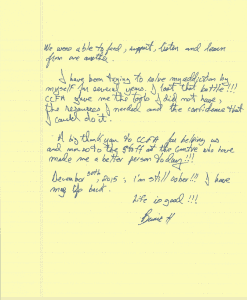 We were able to feel, support, listen and learn
from one another.
I have been trying to solve my addiction by
myself for several years, I lost that battle!!!
CCFA gave me the tools I did not have,
the resources I needed and the confidence that
I could do it.
A big thank you to CCFA for helping us
and more so to the staff at the centre who have
made me a better person today!!!
December 30th, 2015 I'm still sober!!! I have
my life back.
Life is good!!!